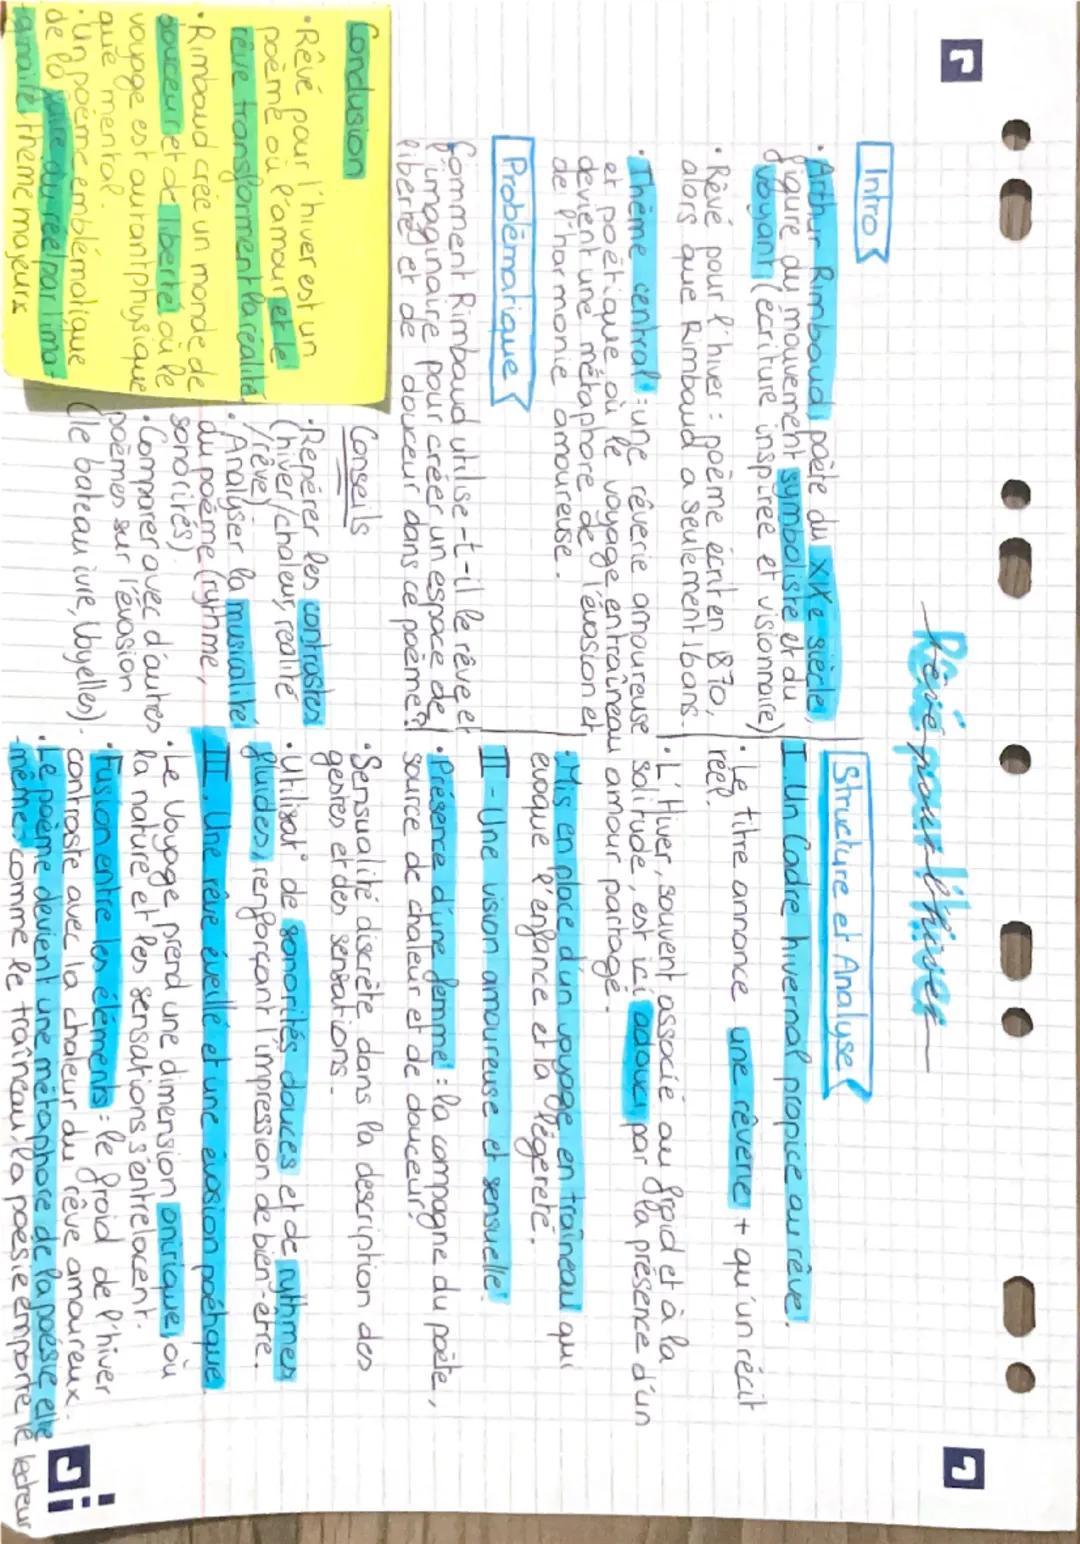 Rêvé pour l'hiver
Intro
• Arthur Rimbaud, poète du XIXe siècle,
figure du mouvement symboliste et du
voyant (écriture inspirée et visionnaire)
• Rêvé pour l'hiver : poème écrit en 1870,
alors que Rimbaud a seulement 16 ans.
• Thème central : une rêverie amoureuse
et poétique, où le voyage en traîneau
devient une métaphore de l'évasion et
de l'harmonie amoureuse.
Problématique
Comment Rimbaud utilise-t-il le rêve et
l'imaginaire pour créer un espace de
liberté et de douceur dans ce poème ?
Conclusion
• Rêvé pour l'hiver est un
poème où l'amour et le
rêve transforment la réalité
• Rimbaud crée un monde de
douceur et de liberté où le
voyage est autant physique
que mental.
• Un poème emblématique
de la
thème majeurx
Conseils
• Repérer les contrastes
(hiver/chaleur, réalité
/rêve)
• Analyser la musicalité
du poème (rythme,
sonorités)
• Comparer avec d'autres
poèmes sur l'évasion
(le bateau ivre, Voyelles)
Structure et Analyse
I. Un Cadre hivernal propice au rêve.
• Le titre annonce une rêverie + qu'un récit
réel.
• L'Hiver, souvent associé au froid et à la
solitude, est ici adouci par la présence d'un
amour partagé.
• Mis en place d'un voyage en traîneau qui
évoque l'enfance et la légèreté.
II - Une vision amoureuse et sensuelle.
• Présence d'une femme : la compagne du poète,
source de chaleur et de douceur.
• Sensualité discrète dans la description des
gestes et des sensations.
• Utilisat° de sonorités douces et de rythmes
fluides, renforçant l'impression de bien-être.
III. Une rêve éveillé et une évasion poétique.
• Le Voyage prend une dimension onirique, où
la nature et les sensations s'entrelacent.
• Fusion entre les éléments : le froid de l'hiver
contraste avec la chaleur du rêve amoureux.
• Le poème devient une métaphore de la poésie elle
-même, comme le traîneau, la poésie emporte le lecteur